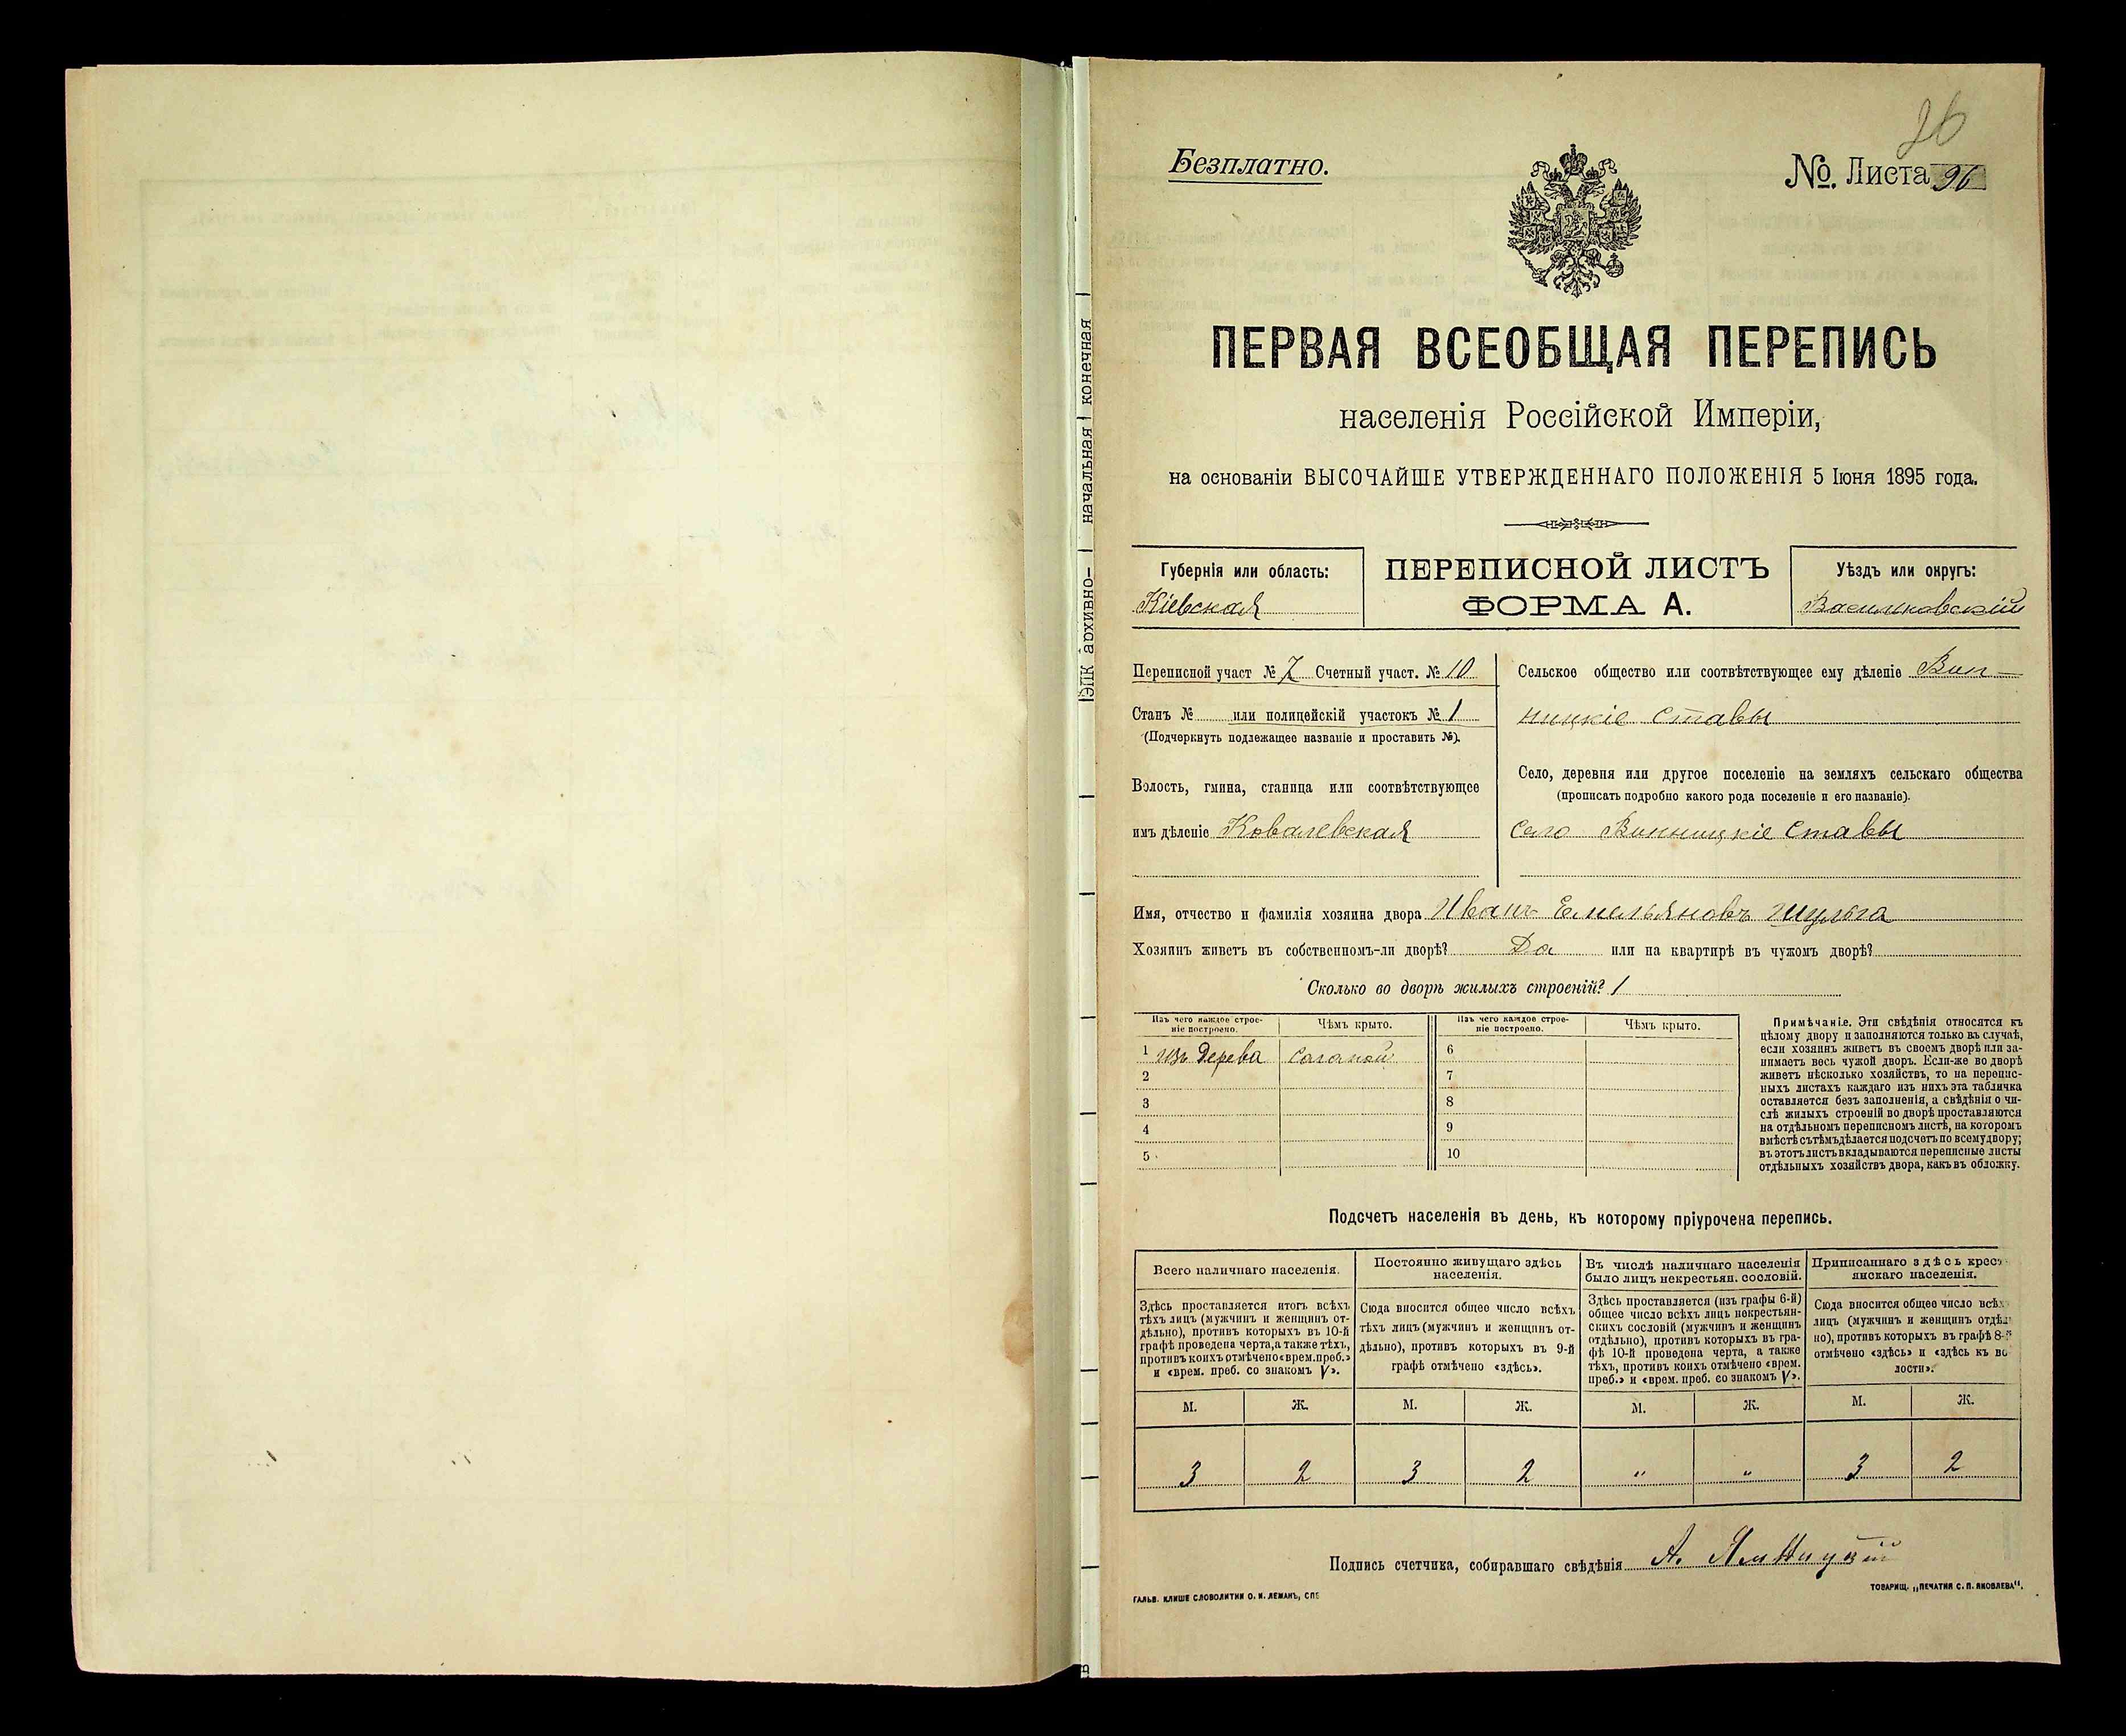 26
Безплатно.
№ Листа 96
ПЕРВАЯ ВСЕОБЩАЯ ПЕРЕПИСЬ
населенія Россійской Имперіи,
на основаніи ВЫСОЧАЙШЕ УТВЕРЖДЕННАГО ПОЛОЖЕНІЯ 5 Іюня 1895 года.
Губернія или область:
Кіевская
ПЕРЕПИСНОЙ ЛИСТЪ
ФОРМА А.
Уѣздъ или округъ:
Васильковскій
Переписной участ № 7 Счетный участ. № 10
Станъ № или полицейскій участокъ № 1
(Подчеркнуть подлежащее названіе и проставить №).
Волость, гмина, станица или соотвѣтствующее
имъ дѣленіе Ковалевская
Сельское общество или соотвѣтствующее ему дѣленіе Вин-
ницкіе Ставы
Село, деревня или другое поселеніе на земляхъ сельскаго общества
(прописать подробно какого рода поселеніе и его названіе).
Село Винницкіе Ставы
Имя, отчество и фамилія хозяина двора Иванъ Емельяновъ Шульга
Хозяинъ живетъ въ собственномъ-ли дворѣ? Да или на квартирѣ въ чужомъ дворѣ?
Сколько во дворѣ жилыхъ строеній? 1
Изъ чего каждое строе-
ніе построено.
Чѣмъ крыто.
1 изъ дерева соломой
2
3
4
5
Изъ чего каждое строе-
ніе построено.
Чѣмъ крыто.
6
7
8
9
10
Примѣчаніе. Эти свѣдѣнія относятся къ
цѣлому двору и заполняются только въ случаѣ,
если хозяинъ живетъ въ своемъ дворѣ или за-
нимаетъ весь чужой дворъ. Если-же во дворѣ
живетъ нѣсколько хозяйствъ, то на перепис-
ныхъ листахъ каждаго изъ нихъ эта табличка
оставляется безъ заполненія, а свѣдѣнія о чи-
слѣ жилыхъ строеній во дворѣ проставляются
на отдѣльномъ переписномъ листѣ, на которомъ
вмѣстѣ съ тѣмъ дѣлается подсчетъ по всему двору;
въ этотъ листъ вкладываются переписные листы
отдѣльныхъ хозяйствъ двора, какъ въ обложку.
Подсчетъ населенія въ день, къ которому пріурочена перепись.
Всего наличнаго населенія.
Здѣсь проставляется итогъ всѣхъ
тѣхъ лицъ (мужчинъ и женщинъ от-
дѣльно), противъ которыхъ въ 10-й
графѣ проведена черта, а также тѣхъ,
противъ коихъ отмѣчено «врем. преб.»
и «врем. преб. со знакомъ V».
Постоянно живущаго здѣсь
населенія.
Сюда вносится общее число всѣхъ
тѣхъ лицъ (мужчинъ и женщинъ от-
дѣльно), противъ которыхъ въ 9-й
графѣ отмѣчено «здѣсь».
Въ числѣ наличнаго населенія
было лицъ некрестьян. сословій.
Здѣсь проставляется (изъ графы 6-й)
общее число всѣхъ лицъ некрестьян-
скихъ сословій (мужчинъ и женщинъ
отдѣльно), противъ которыхъ въ гра-
фѣ 10-й проведена черта, а также
тѣхъ, противъ коихъ отмѣчено «врем.
преб.» и «врем. преб. со знакомъ V».
Приписаннаго здѣсь кресть-
янскаго населенія.
Сюда вносится общее число всѣхъ
лицъ (мужчинъ и женщинъ отдѣль-
но), противъ которыхъ въ графѣ 8-й
отмѣчено «здѣсь» и «здѣсь къ во
лости».
М. Ж. М. Ж. М. Ж. М. Ж.
3 2 3 2 " " 3 2
Подпись счетчика, собиравшаго свѣдѣнія А.
ГАЛЬВ. КЛИШЕ СЛОВОЛИТНИ О. И. ЛЕМАНЪ, СПБ
ТОВАРИЩ. „ПЕЧАТНЯ С. П. ЯКОВЛЕВА".
ЭПК архивно- начальная конечная